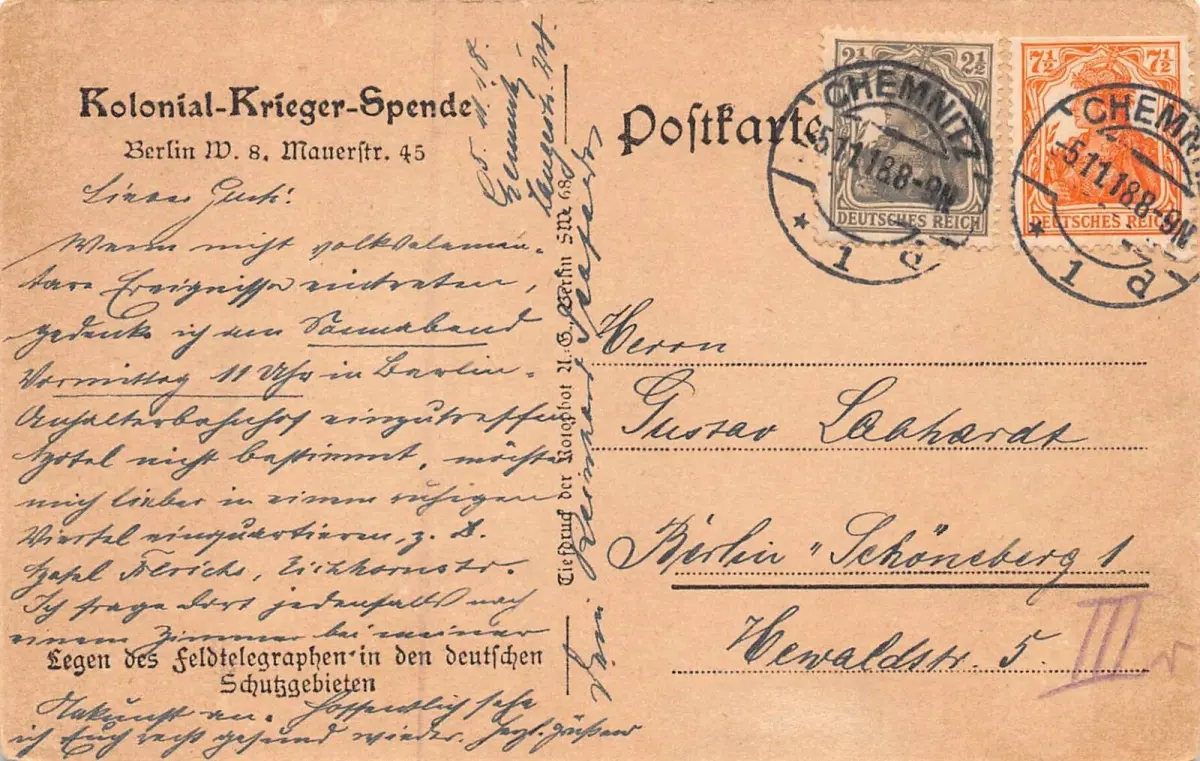 Kolonial-Krieger-Spende
Berlin W. 8. Mauerstr. 45
Postkarte
2½ 2½
DEUTSCHES REICH
7½ 7½
DEUTSCHES REICH
CHEMNITZ
-5.11.18.8-9N
* 1 d
CHEMN
-5.11.18.8-9N
* 1 d
5. 11. 18.
Chemnitz
Langestr.
Lieber Gusti!
Wenn nicht volkselemen-
tare Ereignisse eintreten,
gedenke ich am Sonnabend
Vormittag 11 Uhr in Berlin-
Anhalterbahnhof einzutreffen
Hotel nicht bestimmt, möchte
mich lieber in einem ruhigen
Viertel einquartieren, z. B.
Hotel Eichhornstr.
Ich frage dort jedenfalls nach
einem Zimmer bei meiner
Legen des Feldtelegraphen in den deutschen
Schutzgebieten
Ankunft an. Hoffentlich sehe
ich Euch recht gesund wieder. Herzl. Grüßen
Dein Reinhard
Tiefdruck der Rotophot A.-G., Berlin SW. 68
Herrn
Gustav Labhardt
Berlin "Schöneberg 1
Hewaldstr. 5.
III